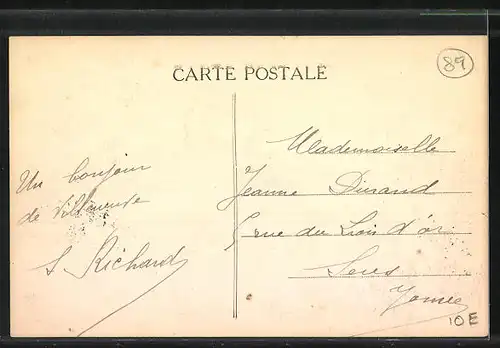 CARTE POSTALE
89
Un bonjour
de Villeneuve
S Richard
Mademoiselle
Jeanne Durand
5 rue du Lion d'or
Sens
Yonne
10 E